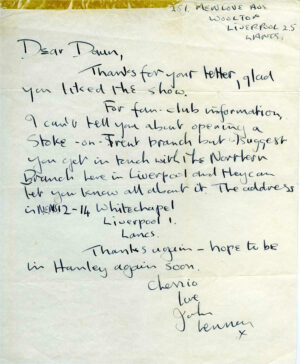 251, MENLOVE AVE
WOOLTON
LIVERPOOL 25
LANCS.
Dear Dawn,
Thanks for your letter, glad
you liked the show.
For fan-club information,
I can't tell you about opening a
Stoke-on-Trent branch but I suggest
you get in touch with the Northern
Branch here in Liverpool and they can
let you know all about it. The address
is NEMS 12-14 Whitechapel
Liverpool 1.
Lancs.
Thanks again - hope to be
in Hanley again soon.
Cheerio
love
John
Lennon
x